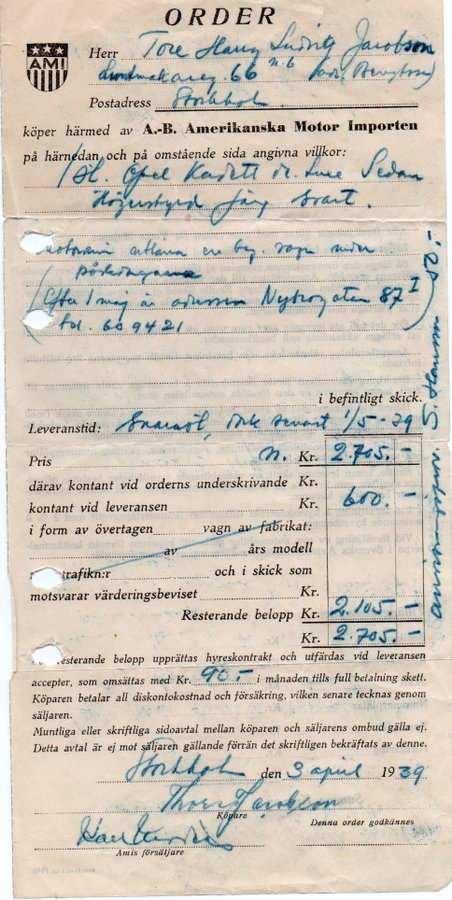 ORDER
AMI
Herr Tore Jacobson
66 n.b.
Postadress Stockholm.
köper härmed av A.-B. Amerikanska Motor Importen
på härnedan och på omstående sida angivna villkor:
1 st. Opel Kadett de Luxe Sedan
Högerstyrd färg svart.
utlånа en beg. vagn under
påskdagarna
(Efter 1 maj är adressen Nybrogatan 87 I
tel. 609421
50:-
i befintligt skick.
Leveranstid: Snarast, icke senast 1/5-39
Pris n. Kr. 2.705.-
därav kontant vid orderns underskrivande Kr.
kontant vid leveransen Kr. 600.-
i form av övertagen vagn av fabrikat:
av års modell
trafikn:r och i skick som
motsvarar värderingsbeviset Kr.
Resterande belopp Kr. 2.105.-
Kr. 2.705.-
resterande belopp upprättas hyreskontrakt och utfärdas vid leveransen
accepter, som omsättas med Kr. 90:- i månaden tills full betalning skett.
Köparen betalar all diskontokostnad och försäkring, vilken senare tecknas genom
säljaren.
Muntliga eller skriftliga sidoavtal mellan köparen och säljarens ombud gälla ej.
Detta avtal är ej mot säljaren gällande förrän det skriftligen bekräftats av denne.
Stockholm den 3 april 1939
Thore Jacobson
Köpare
Denna order godkännes
Amis försäljare